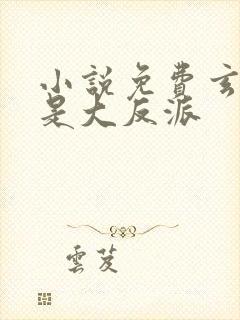 小說免費玄
是大反派
雲芨